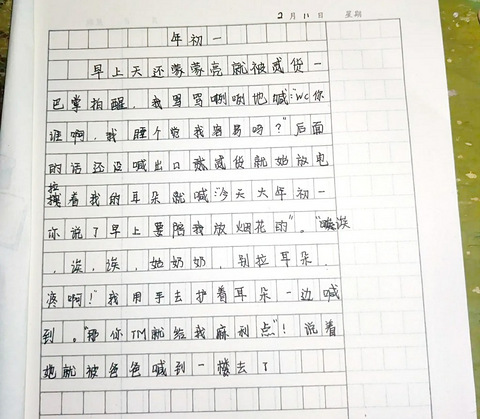 2月11日 星期
年初一
早上天还蒙蒙亮就被贰货一
巴掌拍醒，我骂骂咧咧地喊："WC你
谁啊，我睡个觉我容易吗？"后面
的话还没喊出口 贰货就她放电
拉着我的耳朵就喊："今天大年初一
你说了早上要陪我放烟花的"。"唉唉
，诶，诶，她奶奶，别拉耳朵，
疼啊！"我用手去护着耳朵一边喊
到。"那你TM就给我麻利点"！说着
她就被爸爸喊到一楼去了